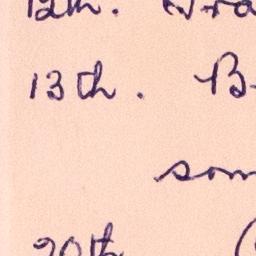 12th.
13th. B
som
20th